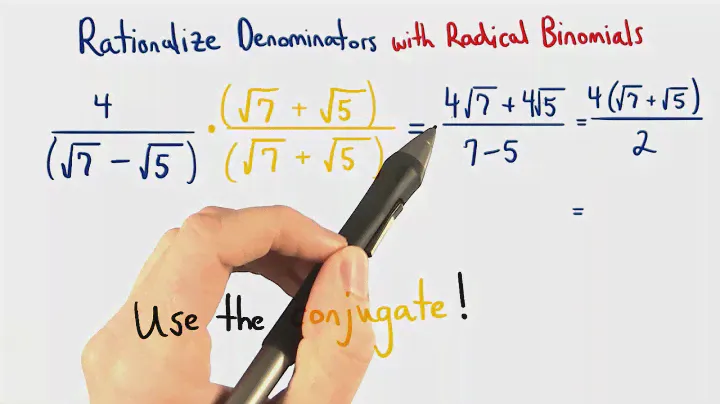 Rationalize Denominators with Radical Binomials
4/(√7 − √5) · (√7 + √5)/(√7 + √5) = (4√7 + 4√5)/(7 − 5) = 4(√7 + √5)/2
=
Use the conjugate!